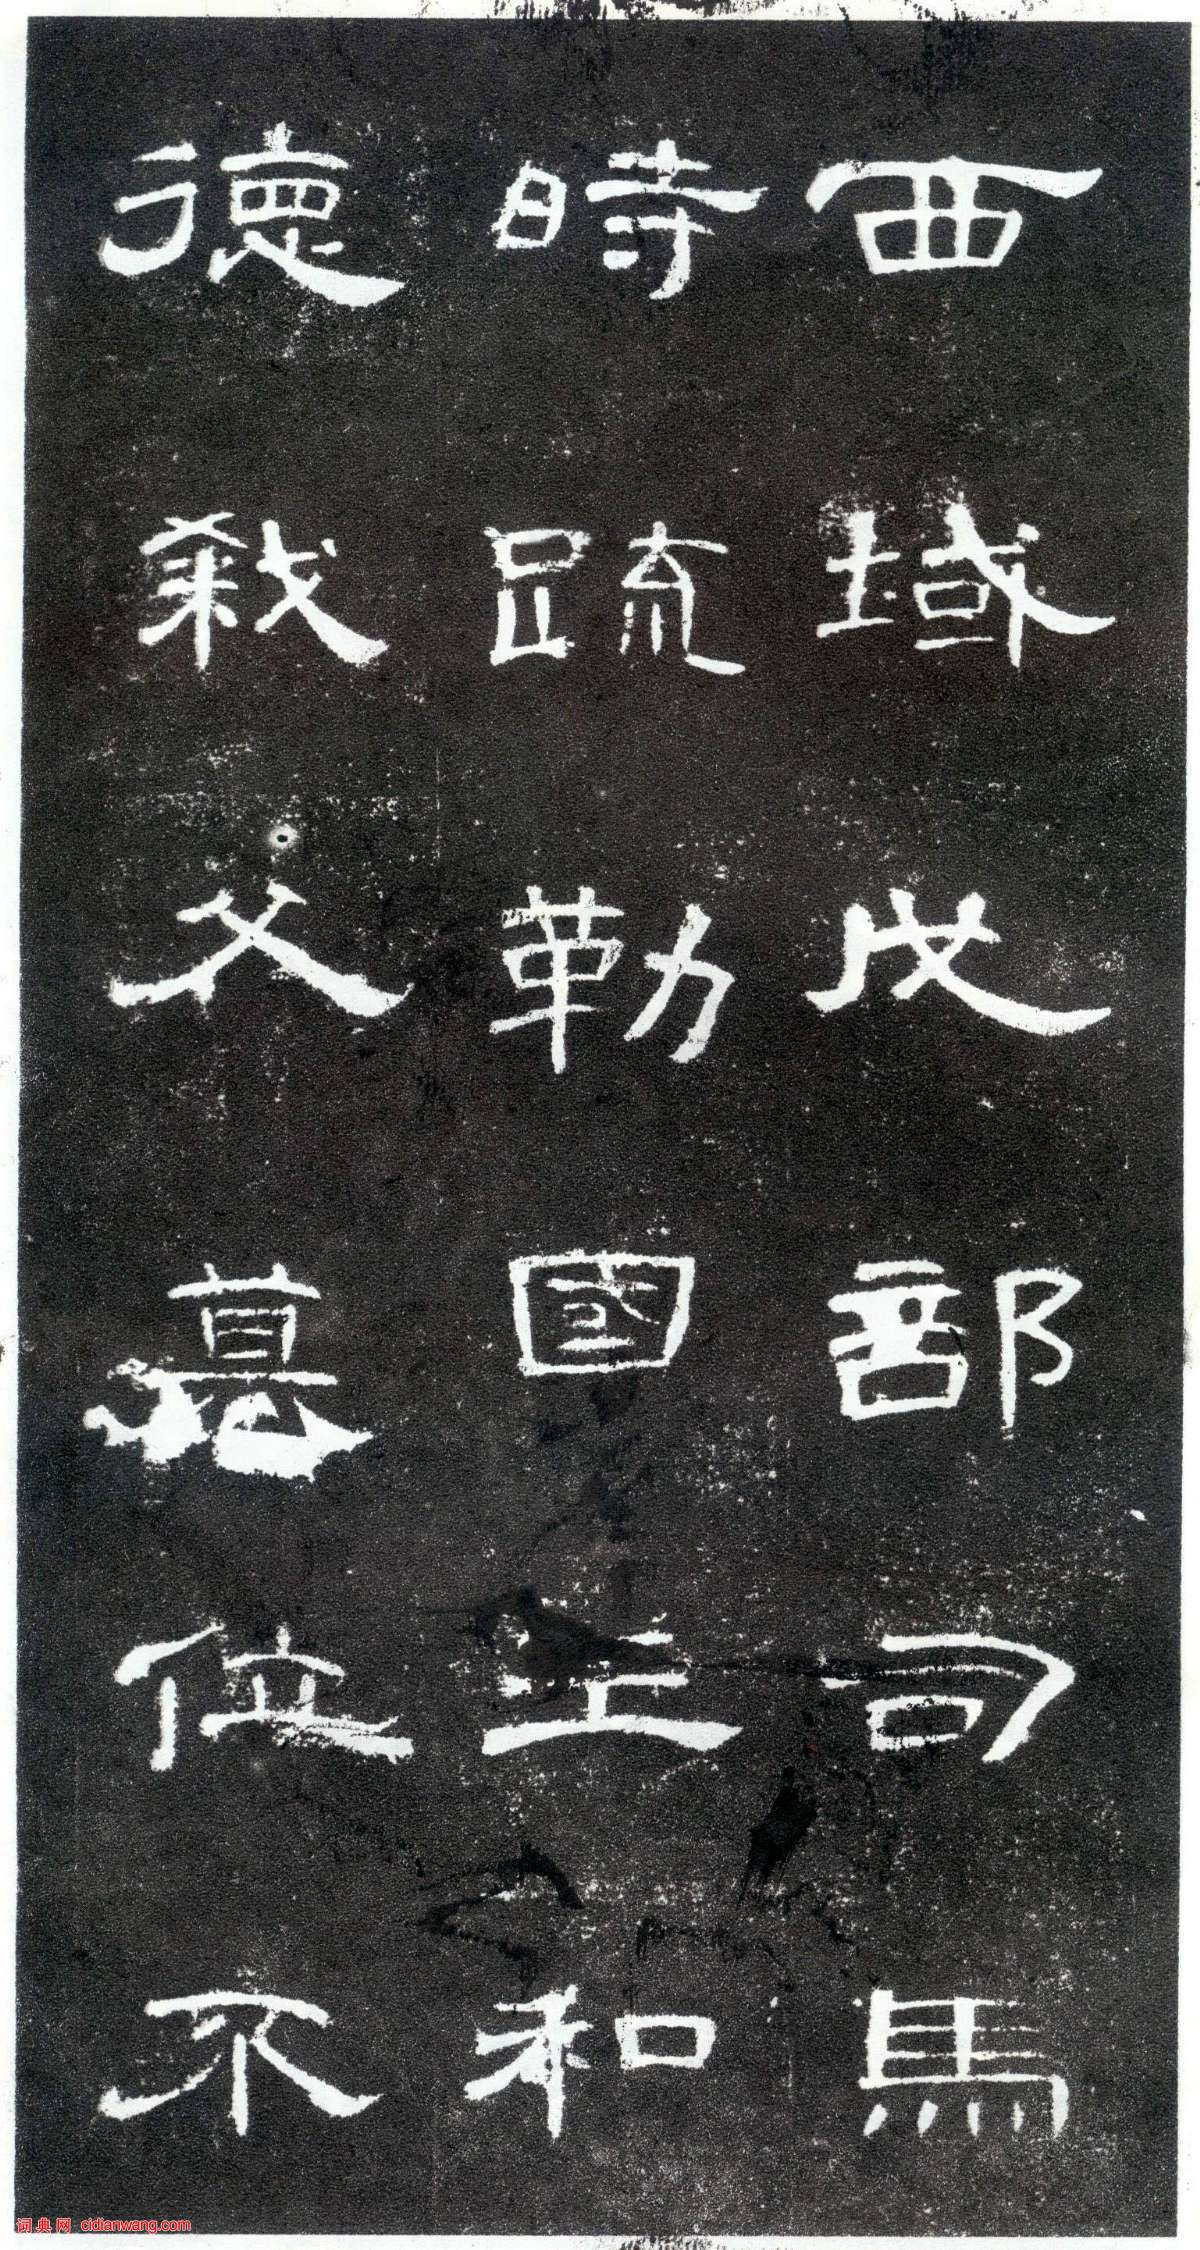 西域戊部司馬
時疏勒國王和
德弒父篡位不
词典网 cidianwang.com